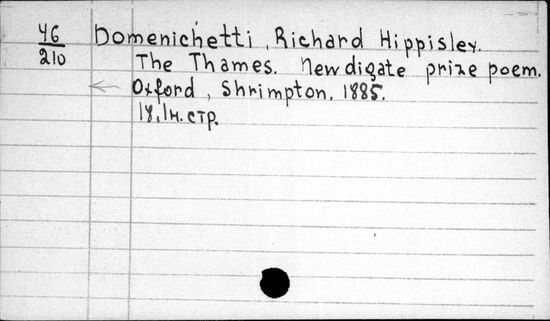 46 Domenichetti, Richard Hippisley.
210 The Thames. Newdigate prize poem.
Oxford, Shrimpton, 1885.
18, 1н. стр.